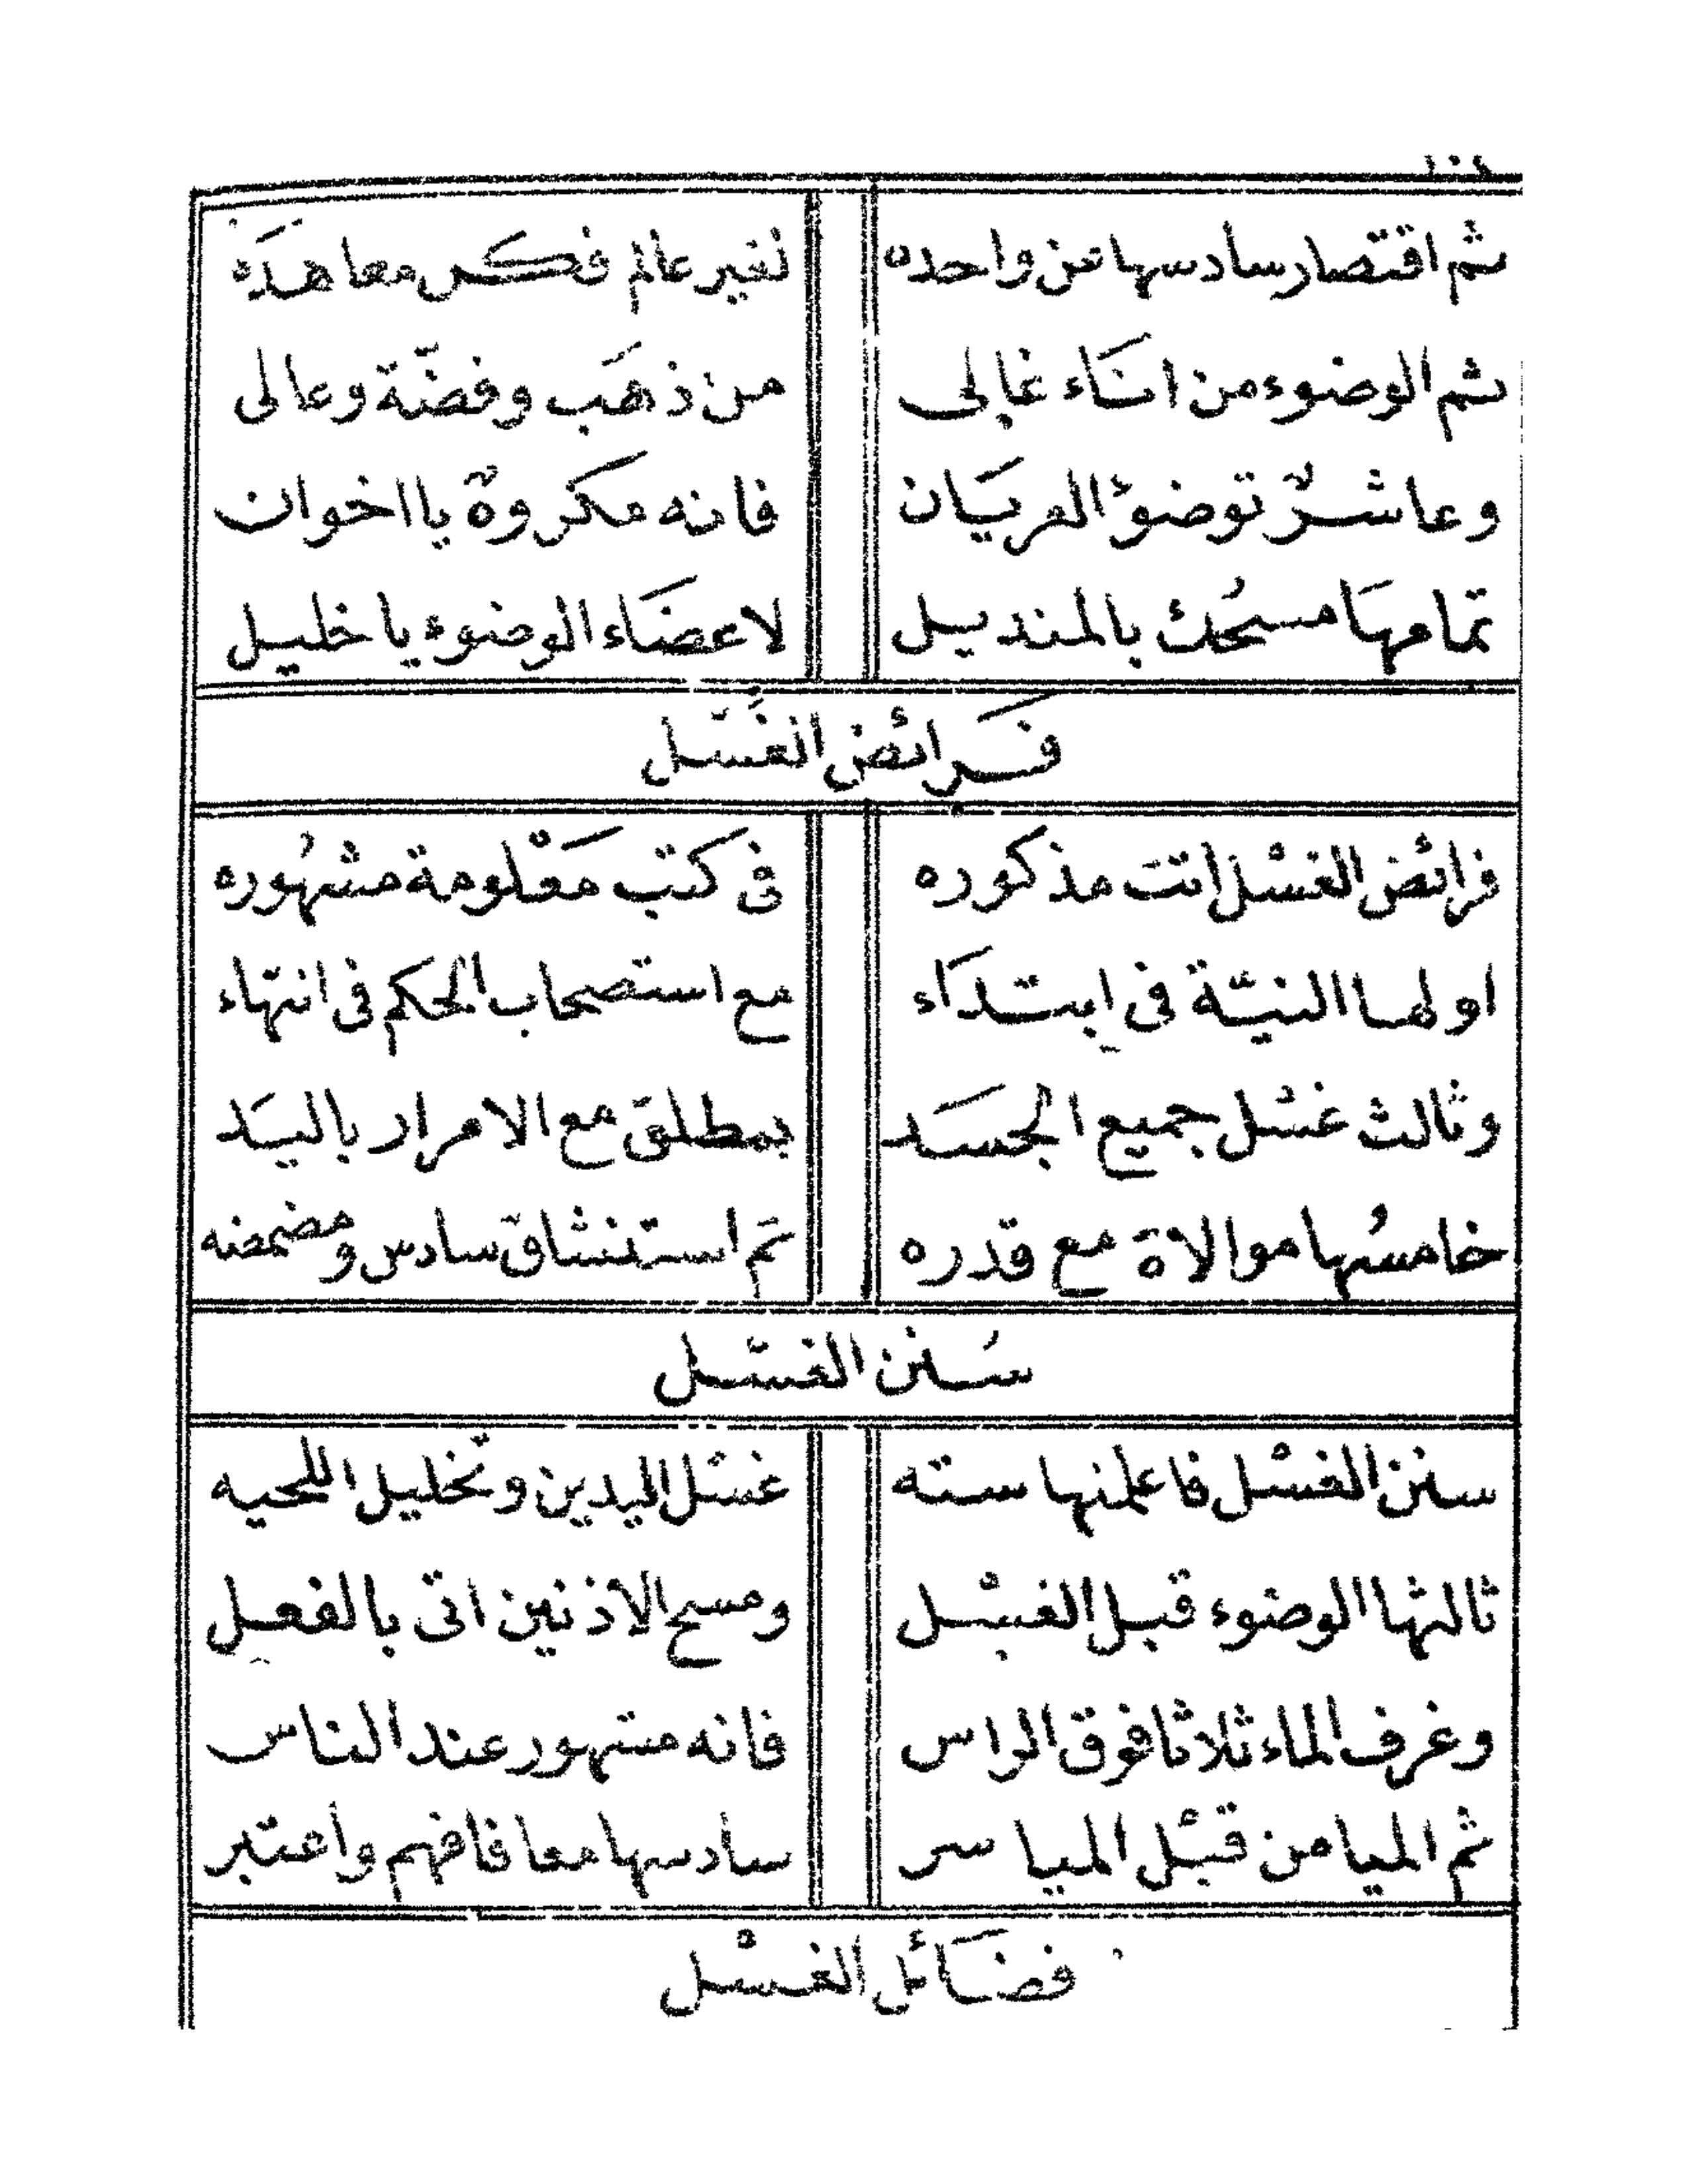 ثم اقتصار سادسها عن واحده لغير عالم فكن معاهدَه
ثم الوضوء من انَاء غالى من ذهَب وفضّة وعالى
وعاشرٌ توضوُّ العريَان فانه مكروهٌ يا اخوان
تمامهَا مسحُك بالمنديل لاعضَاء الوضوء يا خليل
فَرائض الغُسْل
فرائض الغسْل اتت مذكوره فى كتب معْلومة مشهُوره
اولها النيّة فى ابتدَاء مع استصحاب الحكم فى انتهاء
وثالث غسْل جميع الجسَد بمطلق مع الامرار باليَد
خامسُها موالاة مع قدره ثم استنشاق سادس ومضمضه
سُنن الغسْل
سنن الغسْل فاعلمنها سته غسْل اليدين وتخليل اللحيه
ثالثها الوضوء قبل الغسْل ومسح الاذنين اتى بالفعل
وغرف الماء ثلاثا فوق الراس فانه مشهور عند الناس
ثم الميامن قبْل المياسر سادسها معا فافهم واعتبر
فضَائل الغسْل